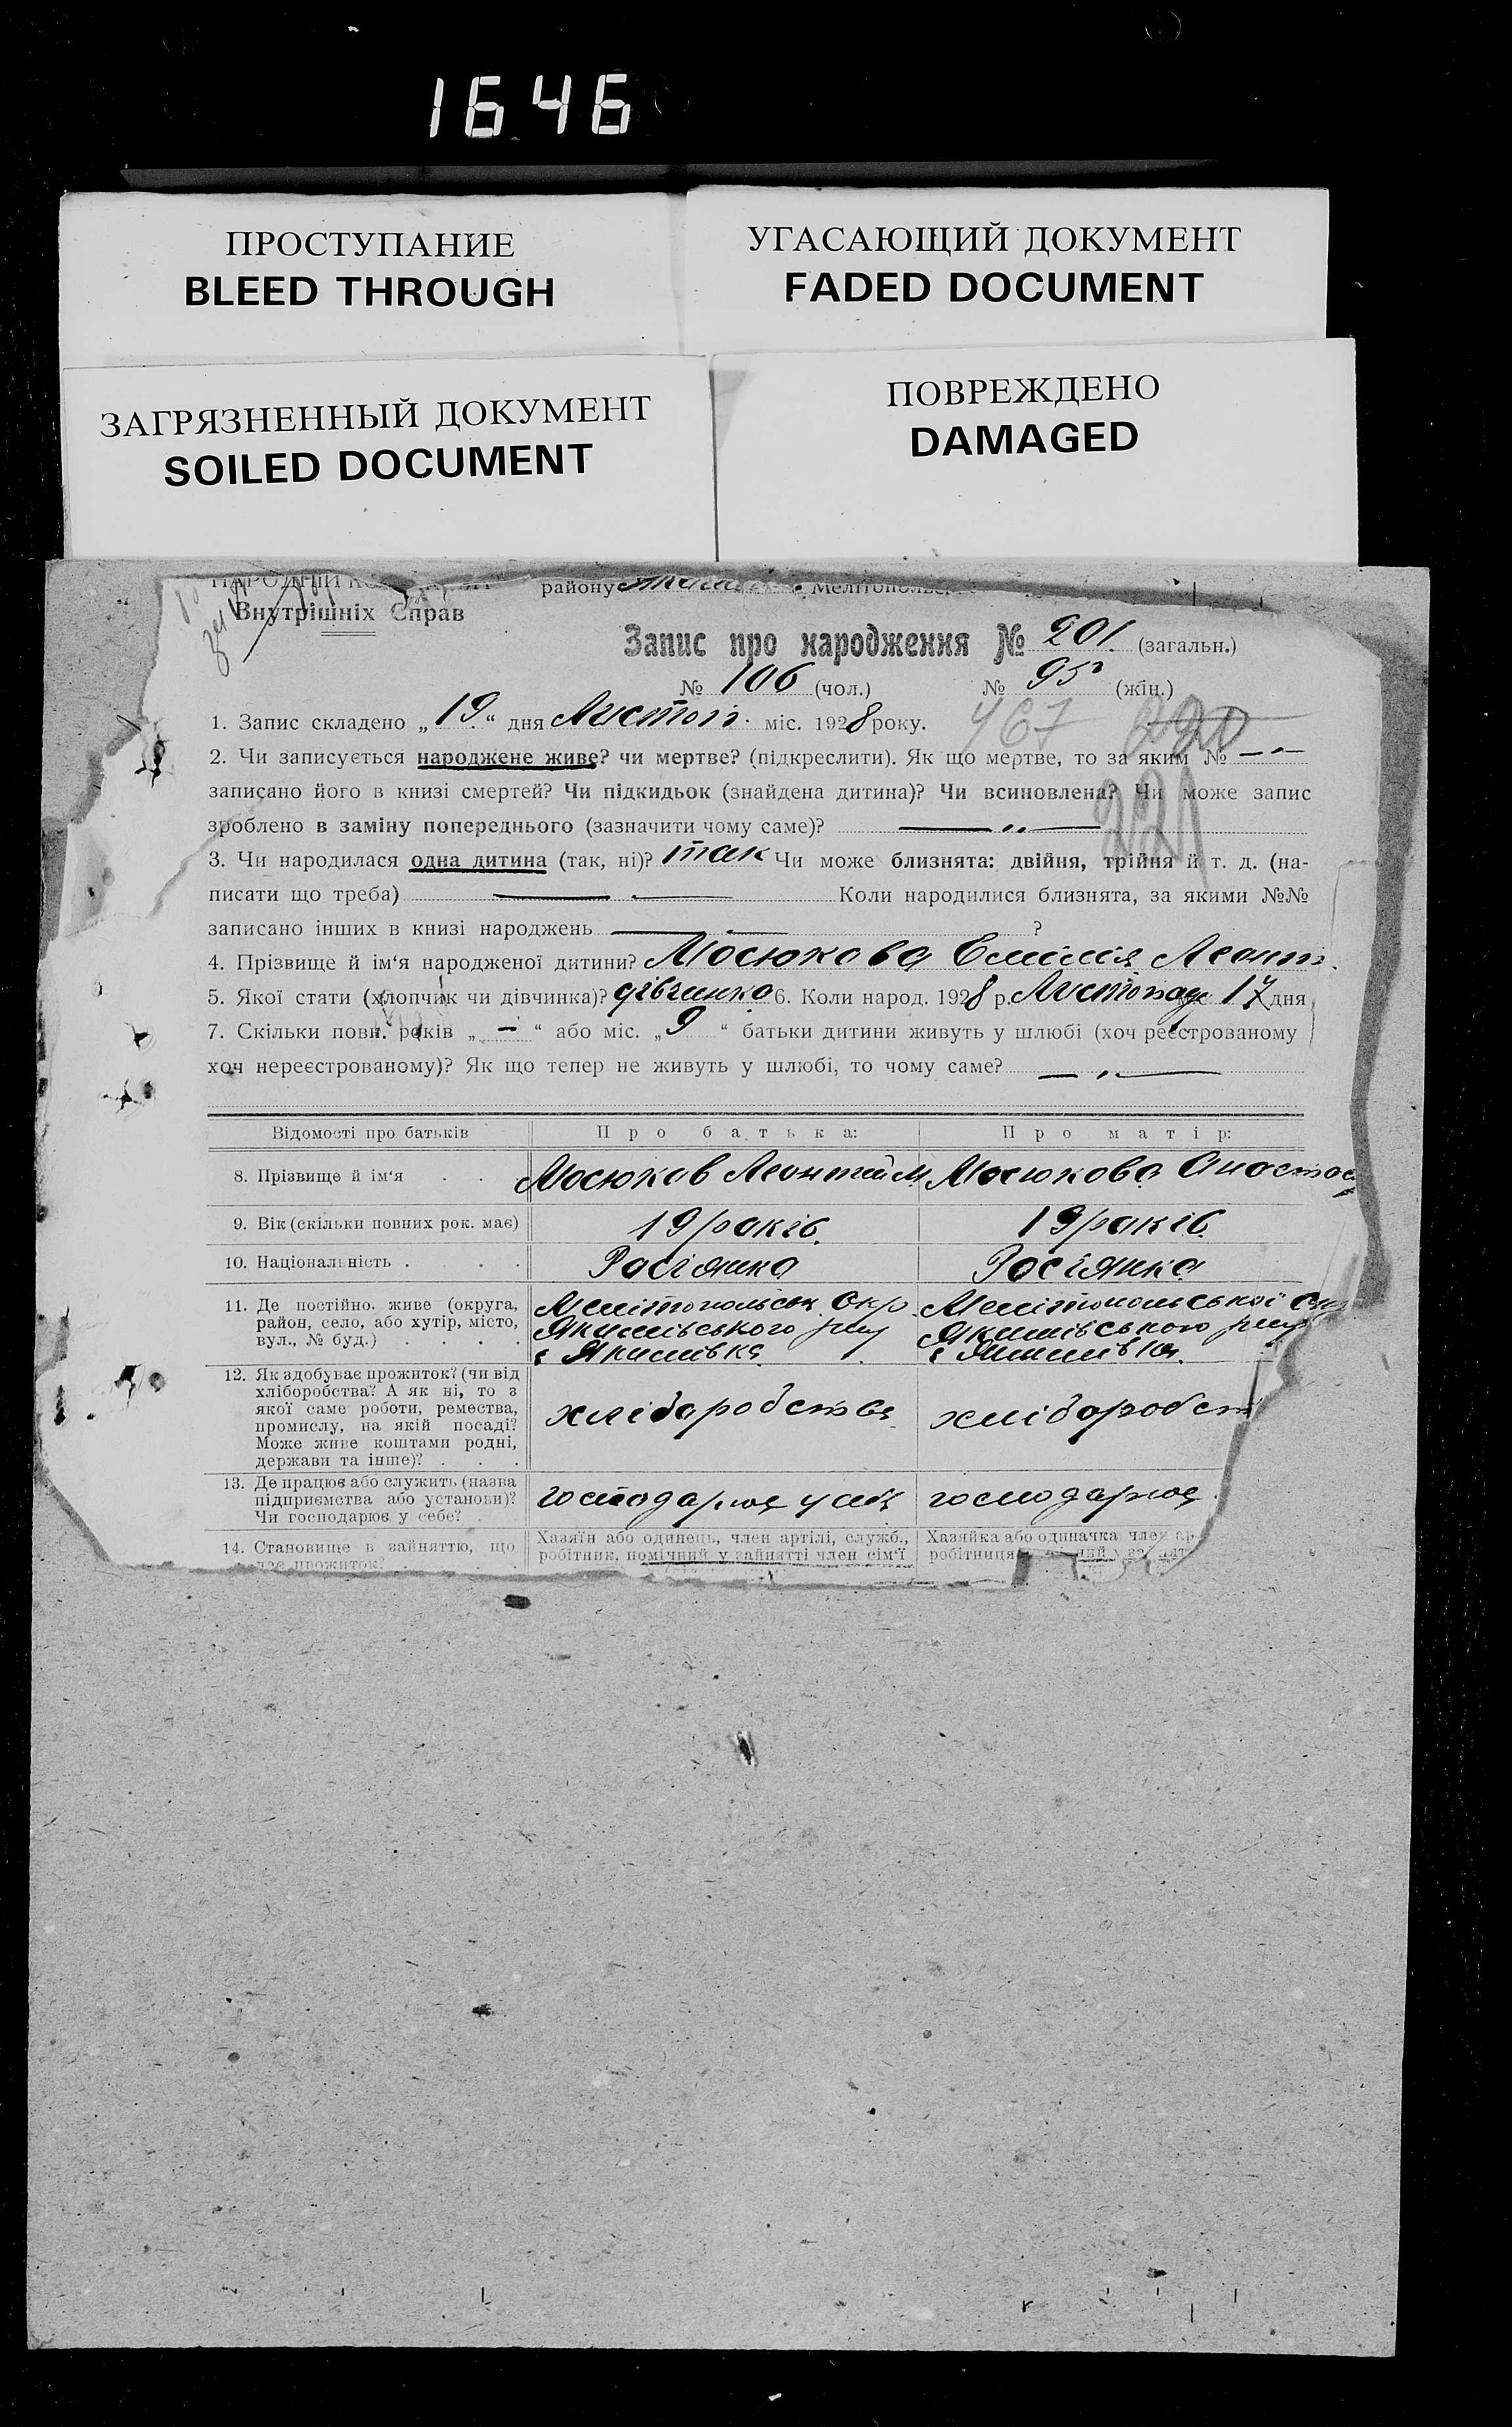 1646
ПРОСТУПАНИЕ
BLEED THROUGH
УГАСАЮЩИЙ ДОКУМЕНТ
FADED DOCUMENT
ЗАГРЯЗНЕННЫЙ ДОКУМЕНТ
SOILED DOCUMENT
ПОВРЕЖДЕНО
DAMAGED
району
Внутрішніх Справ
Запис про народження № 201. (загальн.)
№ 106 (чол.) № 95 (жін.)
1. Запис складено „19“ дня Листоп. міс. 1928 року.
467 220
2. Чи записується народжене живе? чи мертве? (підкреслити). Як що мертве, то за яким № —
записано його в книзі смертей? Чи підкидьок (знайдена дитина)? Чи всиновлена? Чи може запис
зроблено в заміну попереднього (зазначити чому саме)? — „ —
221
3. Чи народилася одна дитина (так, ні)? так Чи може близнята: двійня, трійня й т. д. (на-
писати що треба) — — Коли народилися близнята, за якими №№
записано інших в книзі народжень — — ?
4. Прізвище й ім‘я народженої дитини? Мосюкова Емілія Леонт.
5. Якої стати (хлопчик чи дівчинка)? дівчинка 6. Коли народ. 1928 р. Листопаду 17 дня
7. Скільки повн. років „ — “ або міс. „ 9 “ батьки дитини живуть у шлюбі (хоч реєстрованому
хоч нереєстрованому)? Як що тепер не живуть у шлюбі, то чому саме? — „ —
Відомості про батьків Про батька: Про матір:
8. Прізвище й ім‘я . . Мосюков Леонтий М Мосюкова Анастас
9. Вік (скільки повних рок. має) 19 років. 19 років.
10. Національність . . . . Росіянка Росіянка
11. Де постійно живе (округа, район, село, або хутір, місто, вул., № буд.) . . . .
Мелітопольськ. Окр.
Якимівського р-ну
с Якимівка.
Мелітопольської Окр
Якимівського р-ну
с Якимівка.
12. Як здобуває прожиток? (чи від
хліборобства? А як ні, то з
якої саме роботи, ремества,
промислу, на якій посаді?
Може живе коштами родні,
держави та інше)? . . .
хліборобства хліборобст
13. Де працює або служить (назва
підприємства або установи)?
Чи господарює у себе? .
господарює у себе господарює
14. Становище в зайняттю, що
дає прожиток? . . .
Хазяїн або одинець, член артілі, служб.,
робітник, помічний у зайнятті член сім‘ї
Хазяйка або одиначка член ар
робітниця